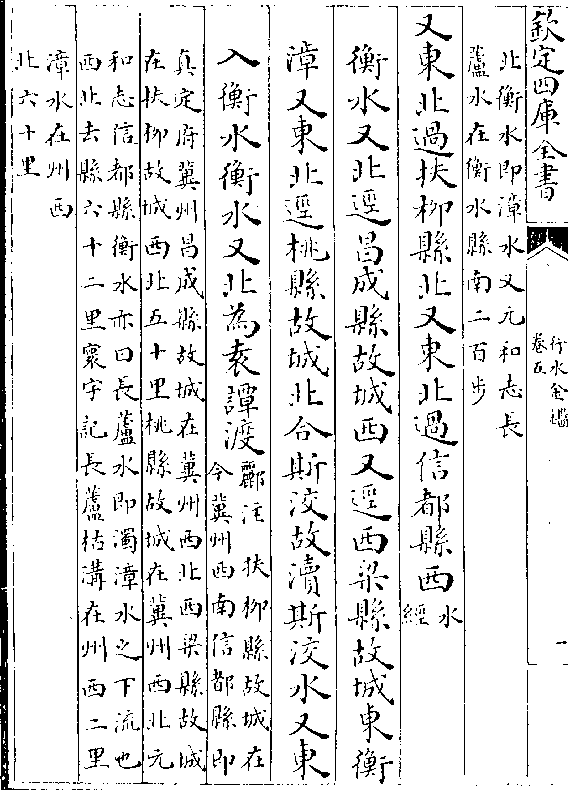 欽定四庫全書
行水金鑑
卷五
一
北衡水即漳水又元和志長
蘆水在衡水縣南二百步
又東北過扶柳縣北又東北過信都縣西
水
經
衡水又北逕昌成縣故城西又逕西梁縣故城東衡
漳又東北逕桃縣故城北合斯洨故瀆斯洨水又東
入衡水衡水又北為袁譚渡
酈注扶柳縣故城在
今冀州西南信都縣即
真定府冀州昌成縣故城在冀州西北西梁縣故城
在扶柳故城西北五十里桃縣故城在冀州西北元
和志信都縣衡水亦曰長蘆水即濁漳水之下流也
西北去縣六十二里寰宇記長蘆枯溝在州西二里
漳水在州西
北六十里